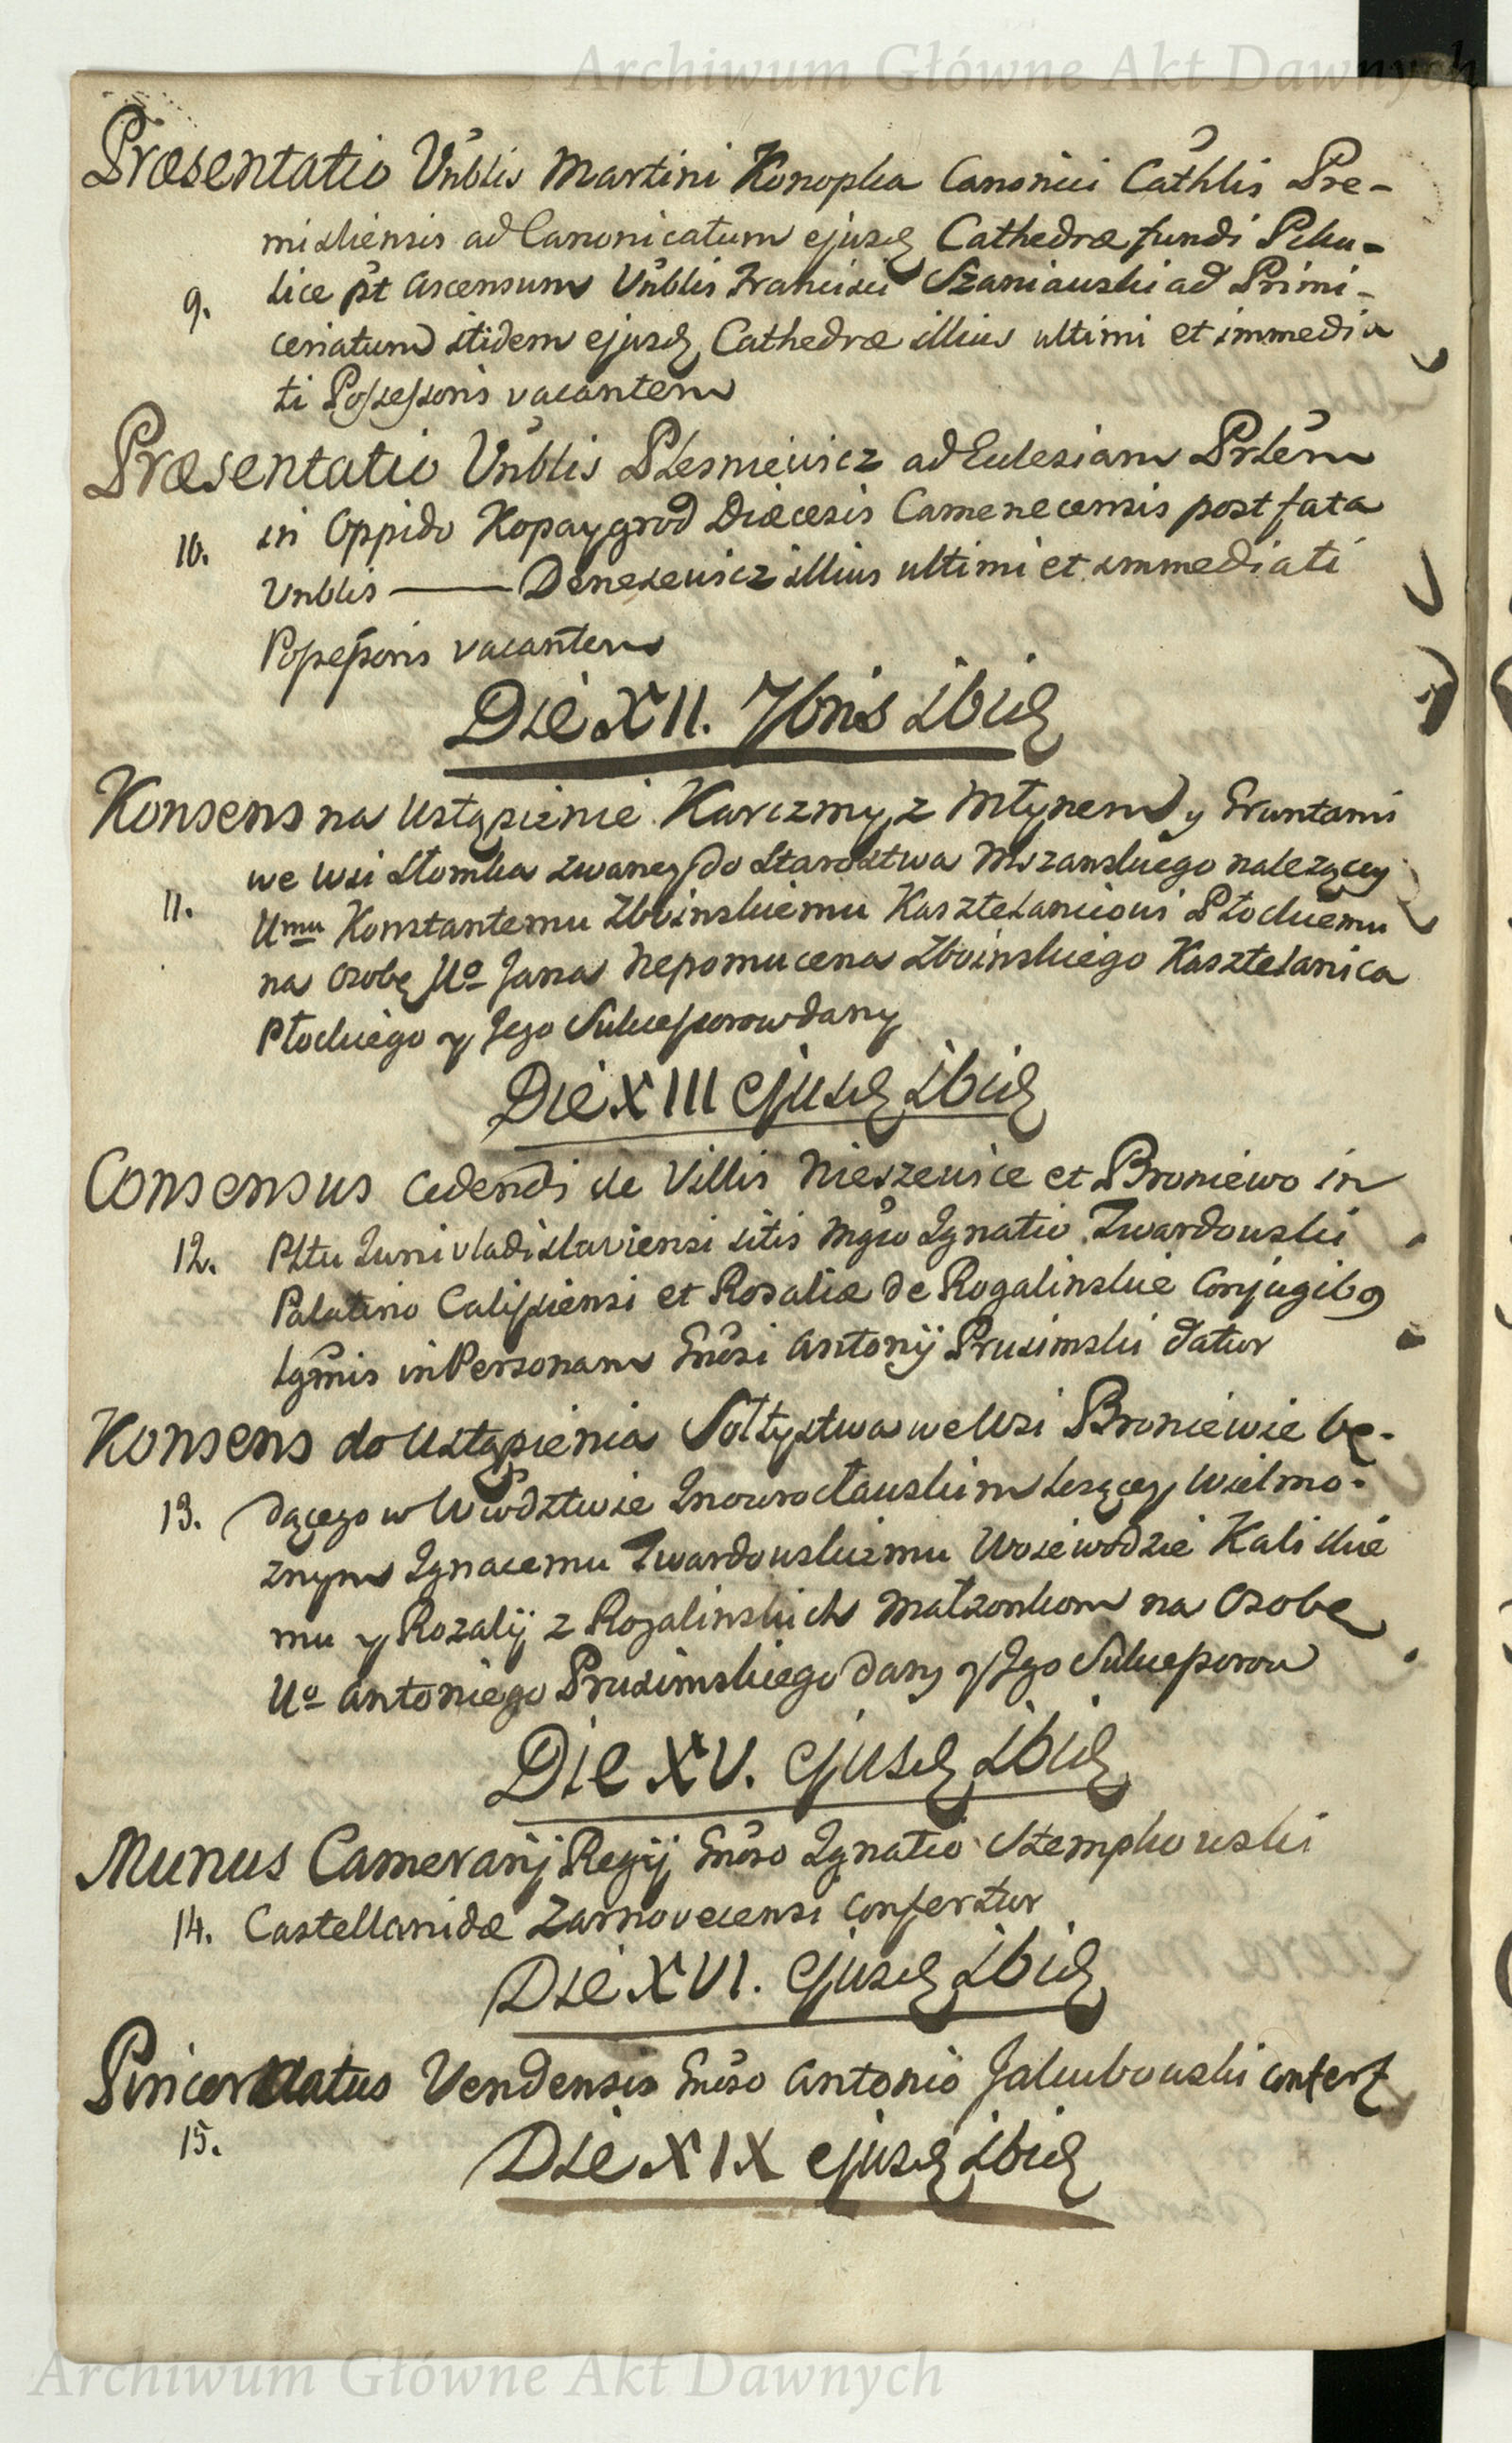 Archiwum Główne Akt Dawnych
Præsentatio Vnblis Martini Konopka Canonici Cathlis Pre-
misliensis ad Canonicatum ejusd Cathedræ fundi Piku-
9. lice pt Ascensum Vnblis Francisci Szaniawski ad Primi-
ceriatum itidem ejusd Cathedræ illius ultimi et immedia
ti Possessoris vacantem
Præsentatio Vnblis Plesniewicz ad Eulesiam Prlem
10. in Oppido Kopaygrod Diæcesis Camenecensis post fata
Vnblis —— Denesewicz illius ultimi et immediati
Possessoris vacantem
Die XII. 7bris ibid
Konsens na Ustąpienie Karczmy z Młynem y Gruntami
we wsi Słomka zwaney do Starostwa Mszanskiego należącey
11. Umu Konstantemu Zboinskiemu Kasztelanicowi Płockiemu
na Osobę Uo Jana Nepomucena Zboinskiego Kasztelanica
Płockiego y Jego Sukcessorow dany
Die XIII ejusd ibid
Consensus cedendi de Villis Nieszewice et Broniewo in
12. Pltu Junivladislaviensi sitis Mgco Ignatio Twardowski
Palatino Calissiensi et Rosaliæ de Rogalinskie Conjugibq
Lgmis in Personam Gnosi Antonij Prusimski datur
Konsens do Ustąpienia Sołtystwa we Wsi Broniewie bę-
13. dącego w Wwdztwie Inowrocławskim leżącey Wielmo-
żnym Ignacemu Twardowskiemu Woiewodzie Kaliskie
mu y Rozalij z Rogalinskich Małżonkom na Osobę
Uo Antoniego Prusimskiego dany y Jego Sukcessorow
Die XV. ejusd ibid
Munus Camerarij Regij Gnoso Ignatio Stempkowski
14. Castellanidæ Zarnovecensi confertur
Die XVI. ejusd ibid
Pincernatus Vendensis Gnoso Antonio Jakubowski confert
15.
Die XIX ejusd ibid
Archiwum Główne Akt Dawnych